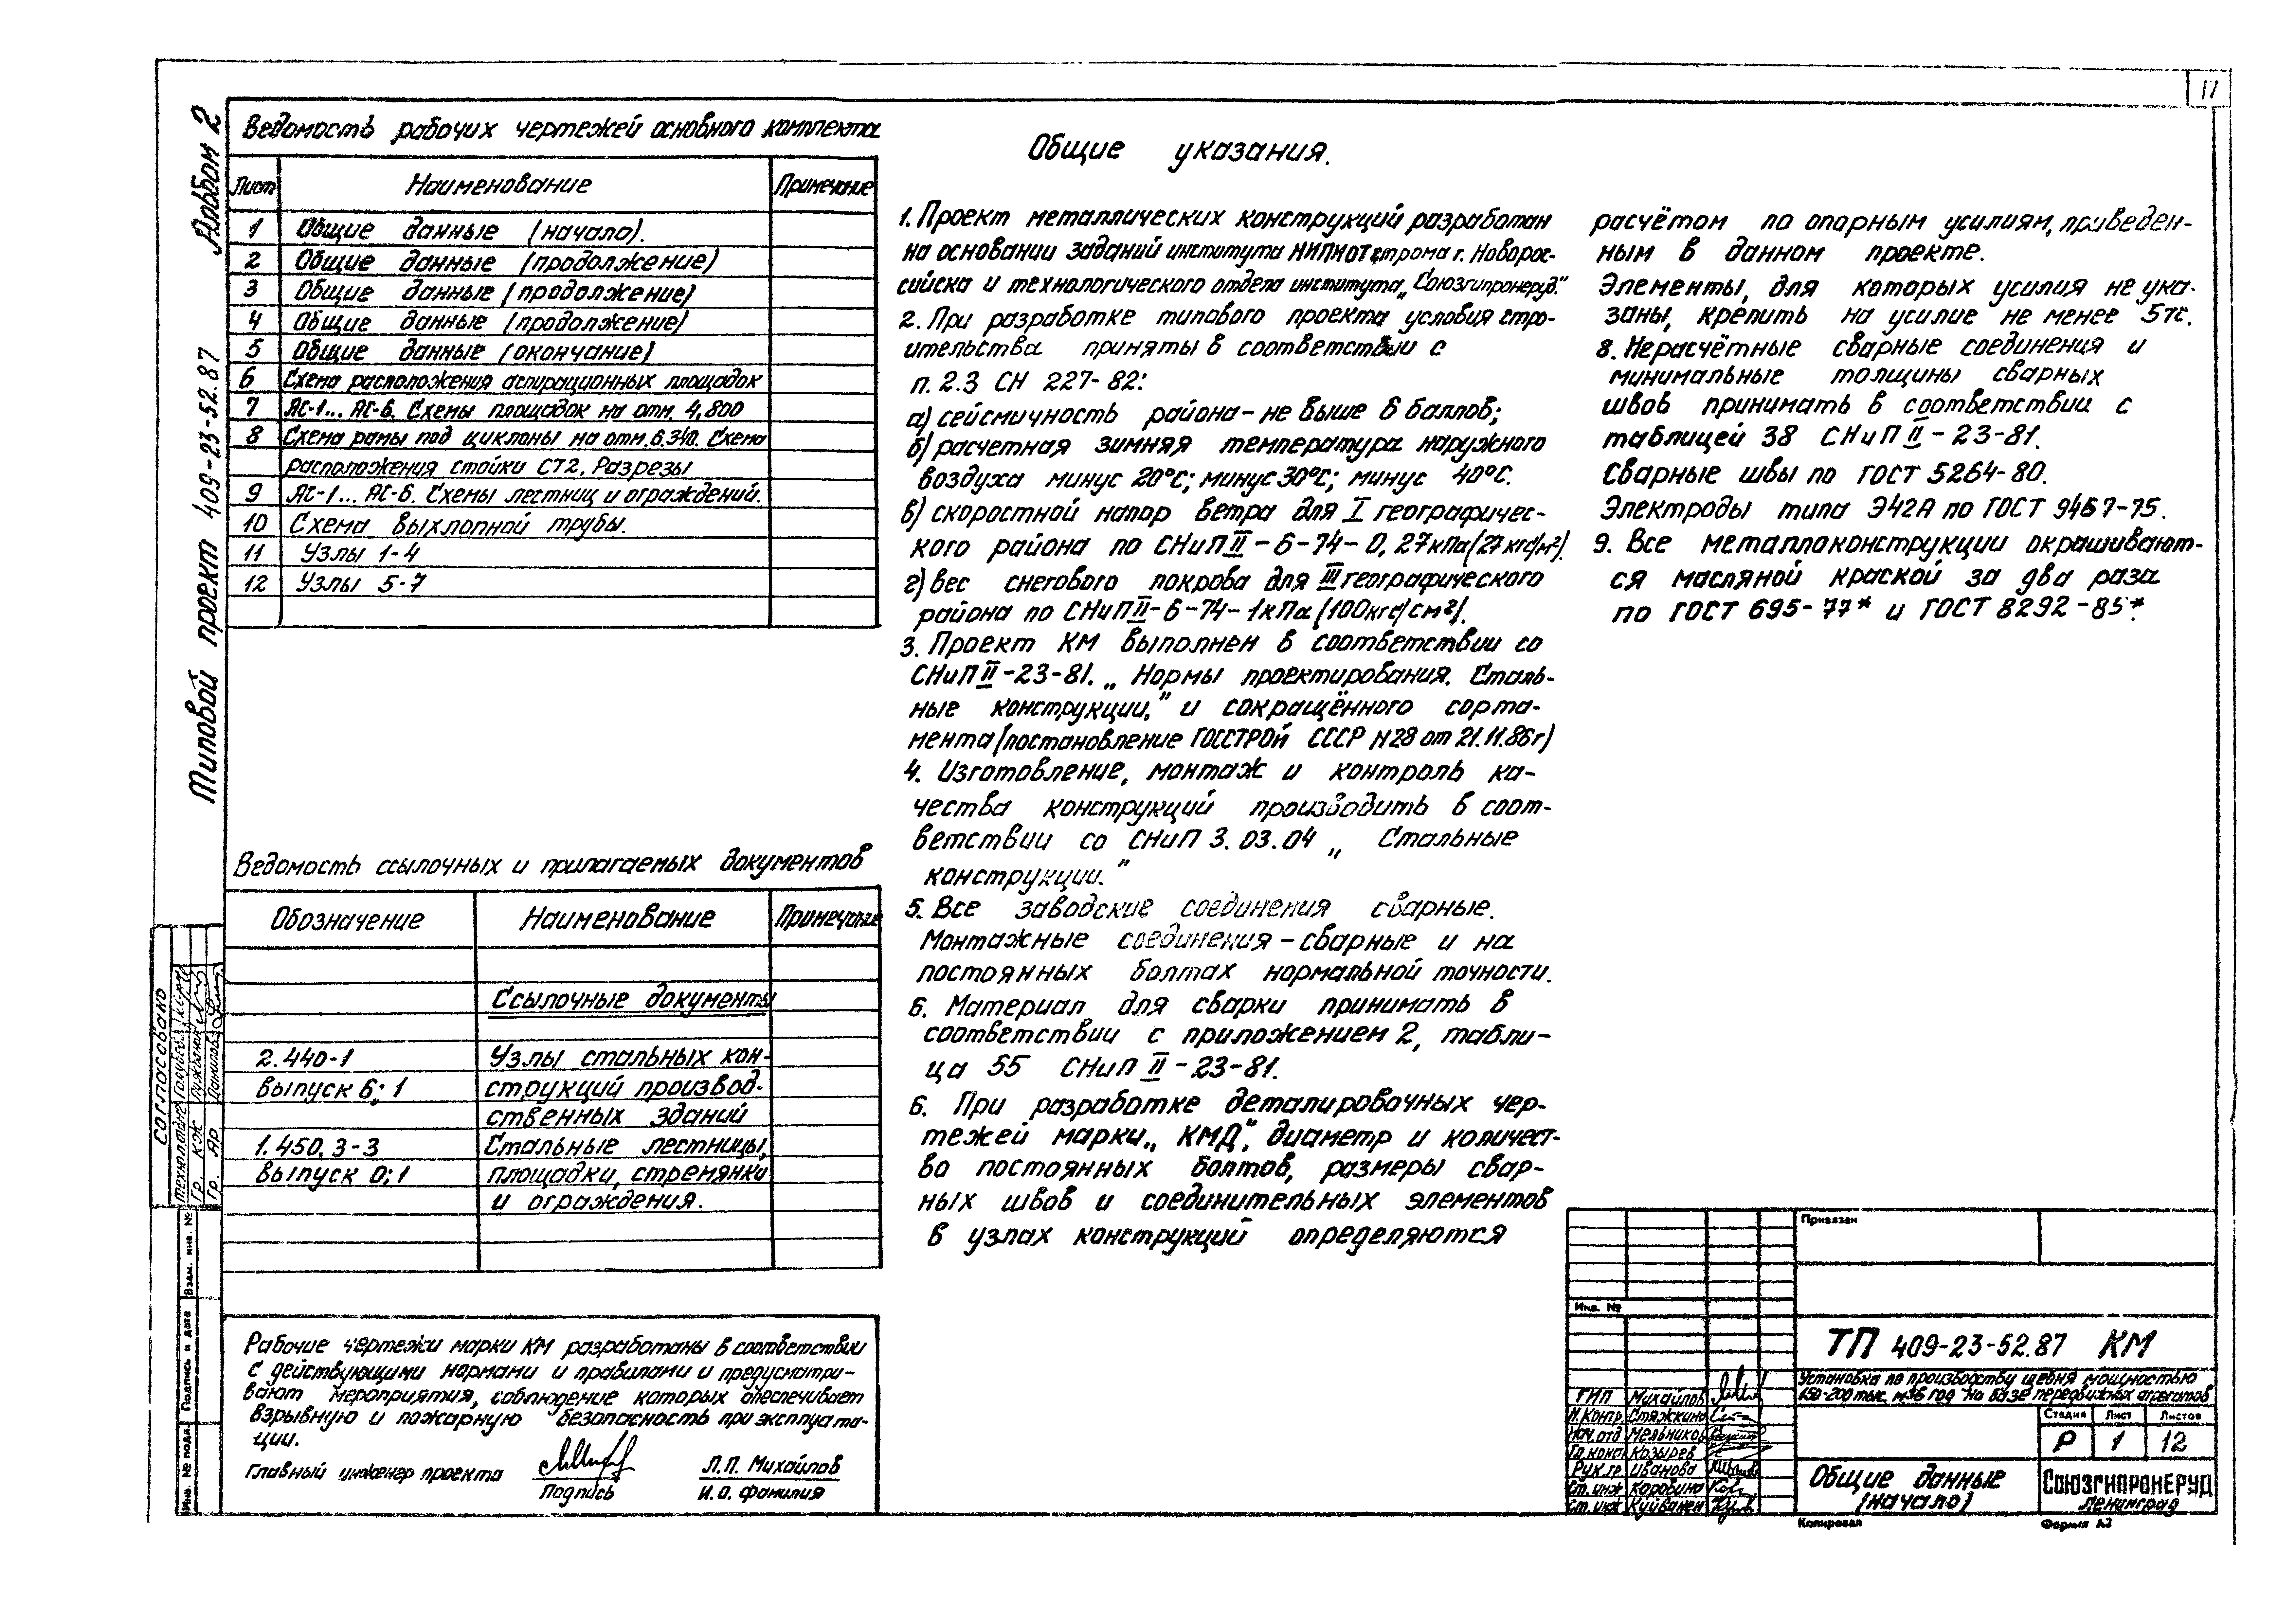 11
Альбом 2
Типовой проект 409-23-52.87
Ведомость рабочих чертежей основного комплекта
Лист Наименование Примечание
1 Общие данные (начало).
2 Общие данные (продолжение)
3 Общие данные (продолжение)
4 Общие данные (продолжение)
5 Общие данные (окончание)
6 Схема расположения аспирационных площадок
7 АС-1... АС-6. Схемы площадок на отм. 4,800
8 Схема рамы под циклоны на отм. 6.340. Схема
расположения стойки СТ2. Разрезы
9 АС-1... АС-6. Схемы лестниц и ограждений.
10 Схема выхлопной трубы.
11 Узлы 1-4
12 Узлы 5-7
Ведомость ссылочных и прилагаемых документов
Обозначение Наименование Примечание
Ссылочные документы
2.440-1 Узлы стальных кон-
выпуск 6; 1 струкций производ-
ственных зданий
1.450.3-3 Стальные лестницы,
выпуск 0; 1 площадки, стремянки
и ограждения.
Рабочие чертежи марки КМ разработаны в соответствии
с действующими нормами и правилами и предусматри-
вают мероприятия, соблюдение которых обеспечивает
взрывную и пожарную безопасность при эксплуата-
ции.
Главный инженер проекта Л.П. Михайлов
Подпись И.О. Фамилия
Общие указания.
1. Проект металлических конструкций разработан
на основании заданий института НИПИОТстрома г. Новорос-
сийска и технологического отдела института „Союзгипронеруд."
2. При разработке типового проекта условия стро-
ительства приняты в соответствии с
п. 2.3 СН 227-82:
а) сейсмичность района - не выше 6 баллов;
б) расчетная зимняя температура наружного
воздуха минус 20°С; минус 30°С; минус 40°С.
в) скоростной напор ветра для I географичес-
кого района по СНиП II-6-74-0,27кПа(27кгс/м²).
г) вес снегового покрова для III географического
района по СНиП II-6-74-1кПа (100кгс/см²).
3. Проект КМ выполнен в соответствии со
СНиП II-23-81. „Нормы проектирования. Сталь-
ные конструкции." и сокращённого сорта-
мента (постановление ГОССТРОЙ СССР N28 от 21.11.86г)
4. Изготовление, монтаж и контроль ка-
чества конструкций производить в соот-
ветствии со СНиП 3.03.04 „ Стальные
конструкции."
5. Все заводские соединения сварные.
Монтажные соединения - сварные и на
постоянных болтах нормальной точности.
6. Материал для сварки принимать в
соответствии с приложением 2, табли-
ца 55 СНиП II-23-81.
6. При разработке деталировочных чер-
тежей марки „КМД", диаметр и количест-
во постоянных болтов, размеры свар-
ных швов и соединительных элементов
в узлах конструкций определяются
расчётом по опорным усилиям, приведен-
ным в данном проекте.
Элементы, для которых усилия не ука-
заны, крепить на усилие не менее 5тс.
8. Нерасчётные сварные соединения и
минимальные толщины сварных
швов принимать в соответствии с
таблицей 38 СНиП II-23-81.
Сварные швы по ГОСТ 5264-80.
Электроды типа Э42А по ГОСТ 9467-75.
9. Все металлоконструкции окрашивают-
ся масляной краской за два раза
по ГОСТ 695-77* и ГОСТ 8292-85*.
Согласовано
Гр. КЖ
Гр. АР Данилова
Взам. инв. №
Подпись и дата
Инв. № подл.
Привязан
Инв. №
ТП 409-23-52.87 КМ
Установка по производству щебня мощностью
150-200 тыс. м³ в год на базе передвижных агрегатов
ГИП Михайлов
Н.контр. Стяжкина
Нач.отд Мельников
Гл.конс Козырев
Рук.гр. Иванова
Ст.инж Коробина
Ст.инж Куйванен
Стадия Лист Листов
Р 1 12
Общие данные
(начало)
СОЮЗГИПРОНЕРУД
Ленинград
Копировал
Формат А2